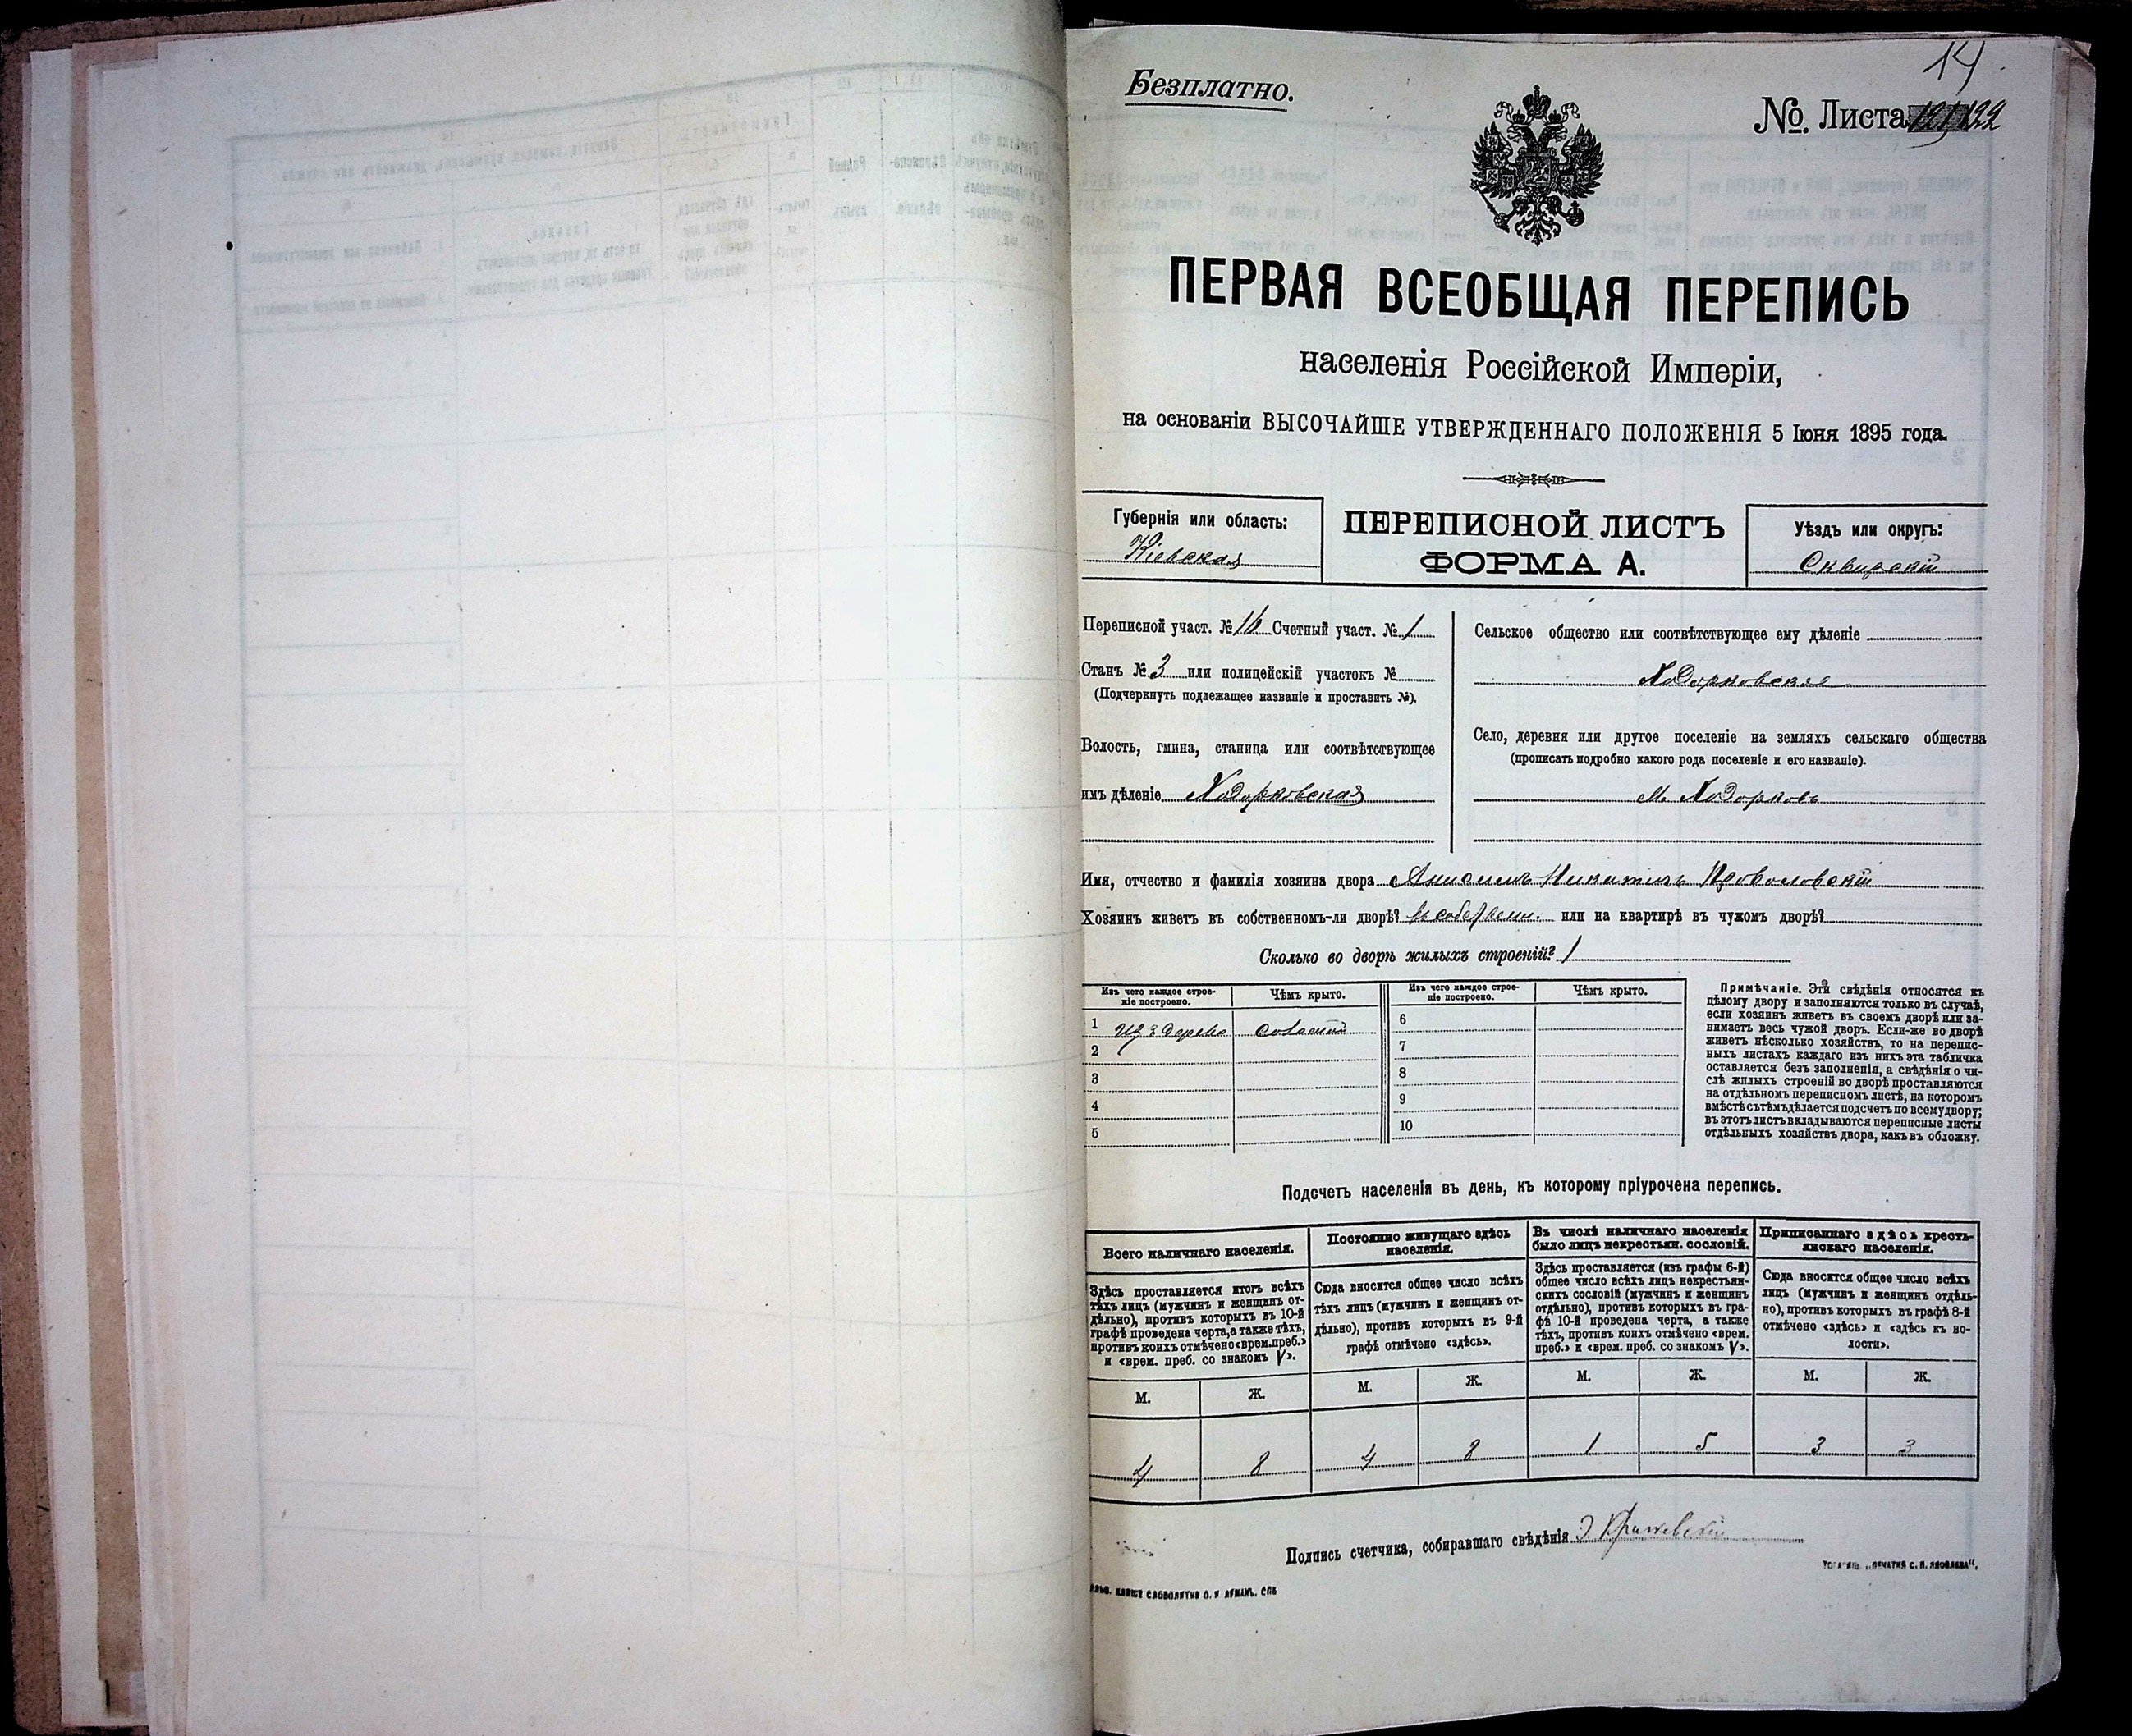 14
Безплатно.
№ Листа 122
ПЕРВАЯ ВСЕОБЩАЯ ПЕРЕПИСЬ
населенія Россійской Имперіи,
на основаніи ВЫСОЧАЙШЕ УТВЕРЖДЕННАГО ПОЛОЖЕНІЯ 5 Іюня 1895 года.
Губернія или область:
Кіевская
ПЕРЕПИСНОЙ ЛИСТЪ
ФОРМА А.
Уѣздъ или округъ:
Сквирскій
Переписной участ. № 16 Счетный участ. № 1
Станъ № 3 или полицейскій участокъ №
(Подчеркнуть подлежащее названіе и проставить №).
Волость, гмина, станица или соотвѣтствующее
имъ дѣленіе Ходорковская
Сельское общество или соотвѣтствующее ему дѣленіе
Ходорковское
Село, деревня или другое поселеніе на земляхъ сельскаго общества
(прописать подробно какого рода поселеніе и его названіе).
м. Ходорковъ
Имя, отчество и фамилія хозяина двора Анисимъ Никитинъ
Хозяинъ живетъ въ собственномъ-ли дворѣ? въ собствен. или на квартирѣ въ чужомъ дворѣ?
Сколько во дворѣ жилыхъ строеній? 1
Изъ чего каждое строе-
ніе построено.
Чѣмъ крыто.
Изъ чего каждое строе-
ніе построено.
Чѣмъ крыто.
1 изъ дерева соломой
2
3
4
5
6
7
8
9
10
Примѣчаніе. Эти свѣдѣнія относятся къ
цѣлому двору и заполняются только въ случаѣ,
если хозяинъ живетъ въ своемъ дворѣ или за-
нимаетъ весь чужой дворъ. Если-же во дворѣ
живетъ нѣсколько хозяйствъ, то на перепис-
ныхъ листахъ каждаго изъ нихъ эта табличка
оставляется безъ заполненія, а свѣдѣнія о чи-
слѣ жилыхъ строеній во дворѣ проставляются
на отдѣльномъ переписномъ листѣ, на которомъ
вмѣстѣ съ тѣмъ дѣлается подсчетъ по всему двору;
въ этотъ листъ вкладываются переписные листы
отдѣльныхъ хозяйствъ двора, какъ въ обложку.
Подсчетъ населенія въ день, къ которому пріурочена перепись.
Всего наличнаго населенія.
Здѣсь проставляется итогъ всѣхъ
тѣхъ лицъ (мужчинъ и женщинъ от-
дѣльно), противъ которыхъ въ 10-й
графѣ проведена черта, а также тѣхъ,
противъ коихъ отмѣчено «врем. преб.»
и «врем. преб. со знакомъ V».
Постоянно живущаго здѣсь
населенія.
Сюда вносится общее число всѣхъ
тѣхъ лицъ (мужчинъ и женщинъ от-
дѣльно), противъ которыхъ въ 9-й
графѣ отмѣчено «здѣсь».
Въ числѣ наличнаго населенія
было лицъ некрестьян. сословій.
Здѣсь проставляется (изъ графы 6-й)
общее число всѣхъ лицъ некрестьян-
скихъ сословій (мужчинъ и женщинъ
отдѣльно), противъ которыхъ въ гра-
фѣ 10-й проведена черта, а также
тѣхъ, противъ коихъ отмѣчено «врем.
преб.» и «врем. преб. со знакомъ V».
Приписаннаго здѣсь кресть-
янскаго населенія.
Сюда вносится общее число всѣхъ
лицъ (мужчинъ и женщинъ отдѣль-
но), противъ которыхъ въ графѣ 8-й
отмѣчено «здѣсь» и «здѣсь къ во-
лости».
М. Ж. М. Ж. М. Ж. М. Ж.
4 8 4 8 1 5 3 3
Подпись счетчика, собиравшаго свѣдѣнія